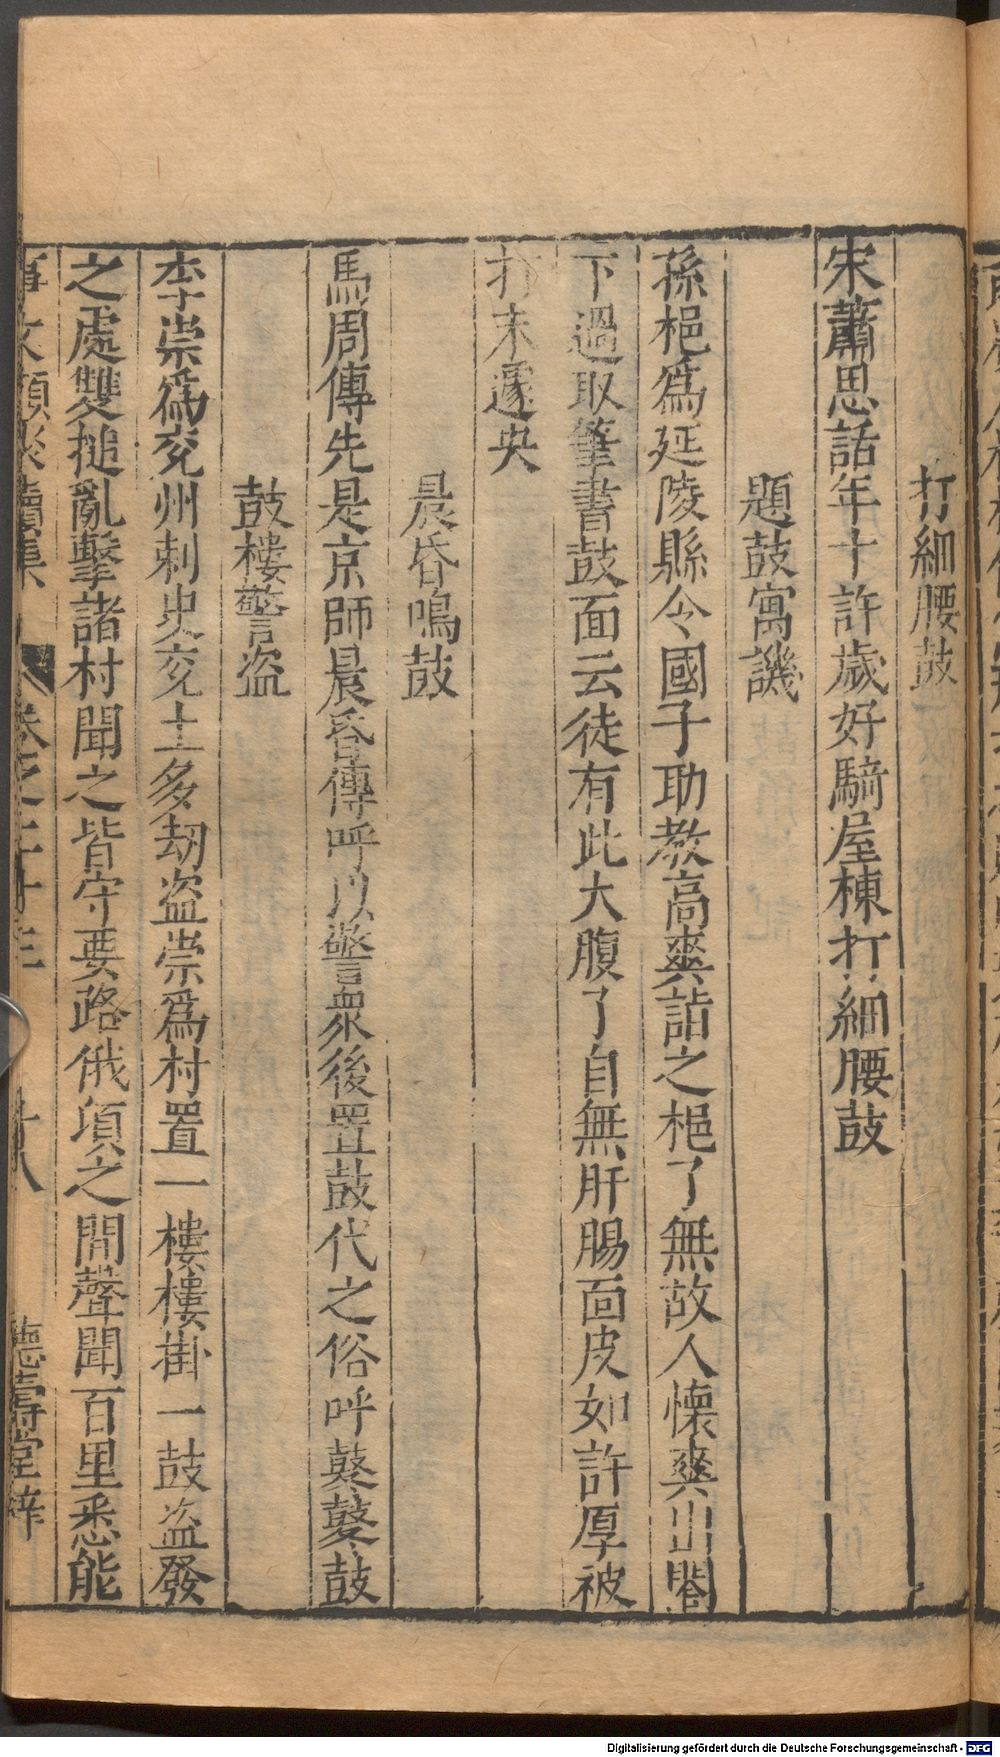 打細腰鼓
宋蕭思話年十許歲好騎屋棟打細腰鼓
題鼓寓譏
孫㧞爲延陵縣令國子助教高爽詣之㧞了無故人懷爽出閣
下過取筆書鼓面云徒有此大腹了自無肝腸面皮如許厚被
打未遽央
晨昏鳴鼓
馬周傳先是京師晨昏傳呼以警衆後置鼓代之俗呼鼕鼕鼓
鼓樓警盜
李崇爲兗州刺史兗土多刼盜崇爲村置一樓樓掛一鼓盜發
之處雙搥亂擊諸村聞之皆守要路俄頃之間聲聞百里悉能
事文類聚續集 卷之二十三 十八 德壽堂梓
Digitalisierung gefördert durch die Deutsche Forschungsgemeinschaft - DFG